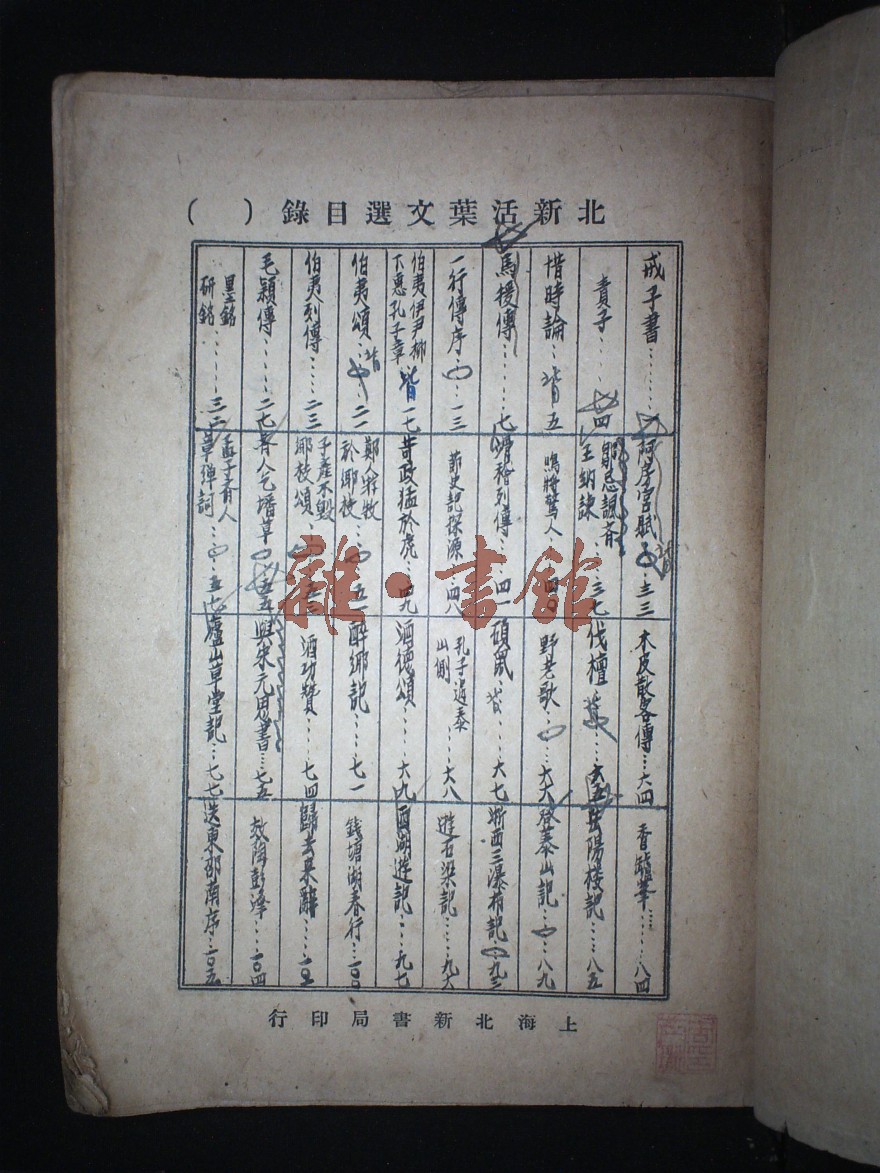 北新活葉文選目錄（　）
戒子書……
責子……四
惜時論……皆五
馬援傳……七
一行傳序……一三
伯夷伊尹柳
下惠孔子章 皆一七
伯夷頌…皆二一
伯夷列傳……二三
毛穎傳……二七
墨銘
研銘……三二
阿房宮賦…皆三三
鄒忌諷齊
王納諫…三七
鳴將驚人…四〇
滑稽列傳…四
節史記探源…四八
苛政猛於虎…四九
鄭人游牧
於鄉校…五一
子產不毀
鄉校頌…五三
齊人乞墦章…五五
孟子齊人
章彈詞…五七
木皮散客傳…六四
伐檀…皆…六五
野老歌……六六
碩鼠…皆…六七
孔子過泰
山側……六八
酒德頌……六九
醉鄉記……七一
酒功贊……七四
與宋元思書…七五
廬山草堂記…七七
香爐峯……八四
岳陽樓記……八五
登泰山記……八九
浙西三瀑布記…九三
遊石梁記……九六
西湖遊記……九七
錢塘湖春行…一〇〇
歸去來辭……一〇
效陶彭澤……一〇四
送東郭南序…一〇五
上海北新書局印行
雜·書館